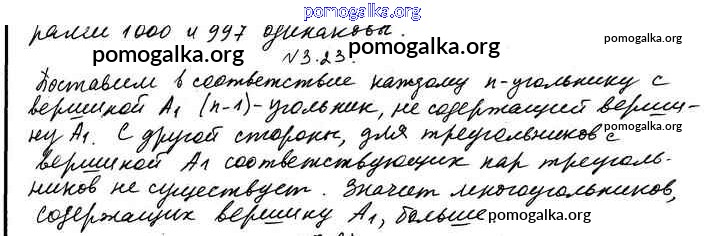 pomogalka.org
ралги 1000 и 997 одинаковы.
pomogalka.org
N3.23. pomogalka.org
pomogalka.org
Поставим в соответствие каждому n-угольнику с
pomogalka.org
вершиной A₁ (n-1)-угольник, не содержащий верши-
ну A₁. С другой стороны, для треугольников с
pomogalka.org
вершиной A₁ соответствующих пар треуголь-
ников не существует. Значит многоугольников,
pomogalka.org
содержащих вершину A₁, больше
pomogalka.org